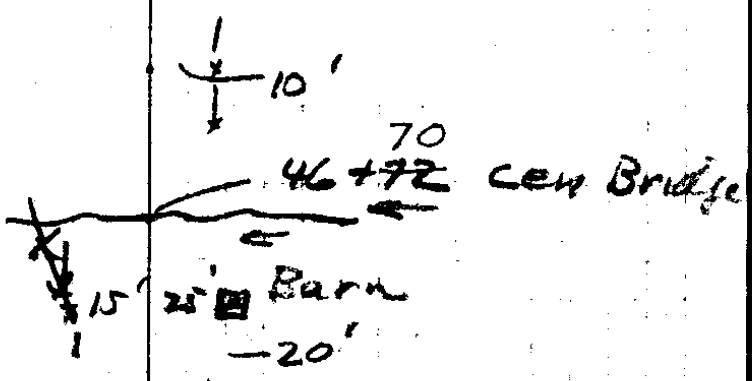 10'
70
46+72 Cen Bridge
15' 25' Barn
-20'